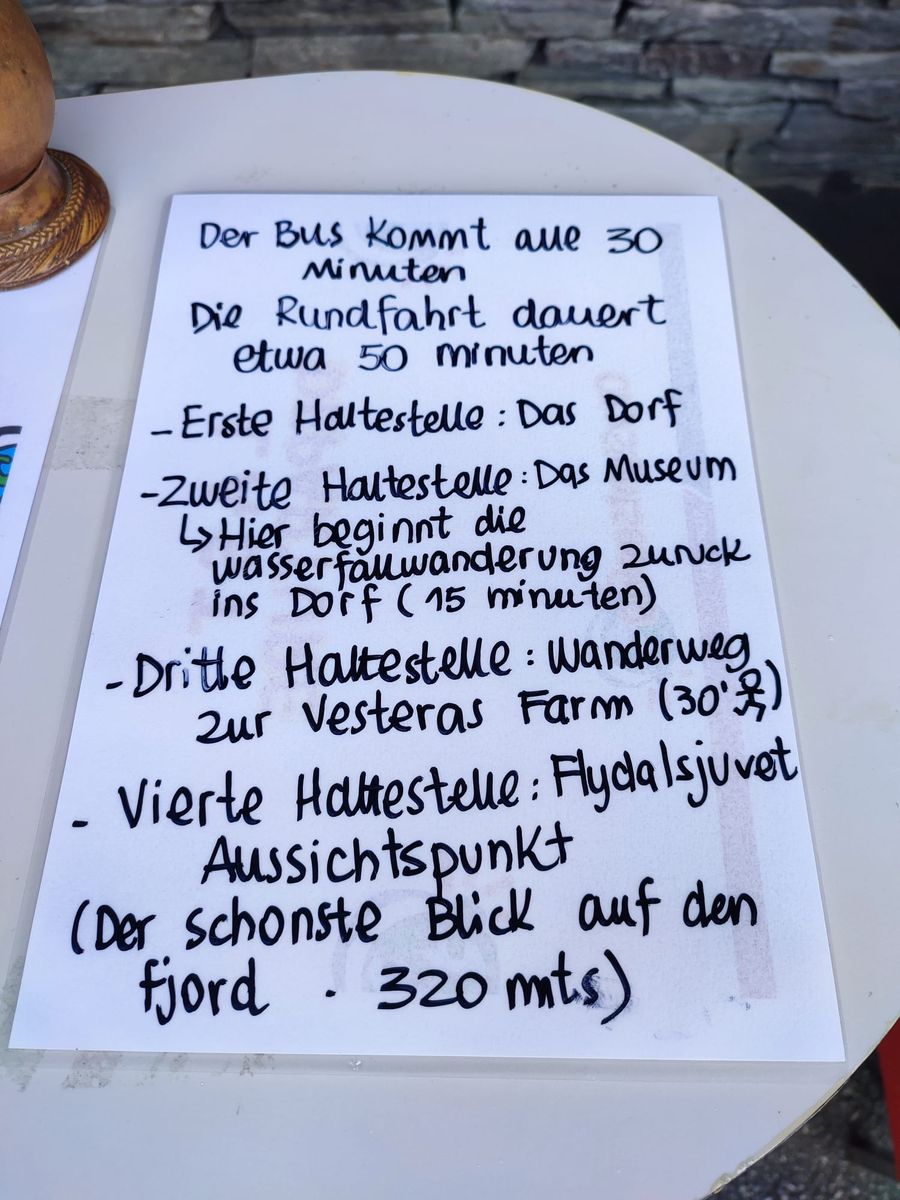 Der Bus kommt alle 30
Minuten
Die Rundfahrt dauert
etwa 50 minuten
- Erste Haltestelle : Das Dorf
- Zweite Haltestelle : Das Museum
↳ Hier beginnt die
wasserfallwanderung zuruck
ins Dorf ( 15 minuten)
- Dritte Haltestelle : Wanderweg
zur Vesteras Farm (30' )
- Vierte Haltestelle : Flydalsjuvet
Aussichtspunkt
(Der schonste Blick auf den
fjord . 320 mts)